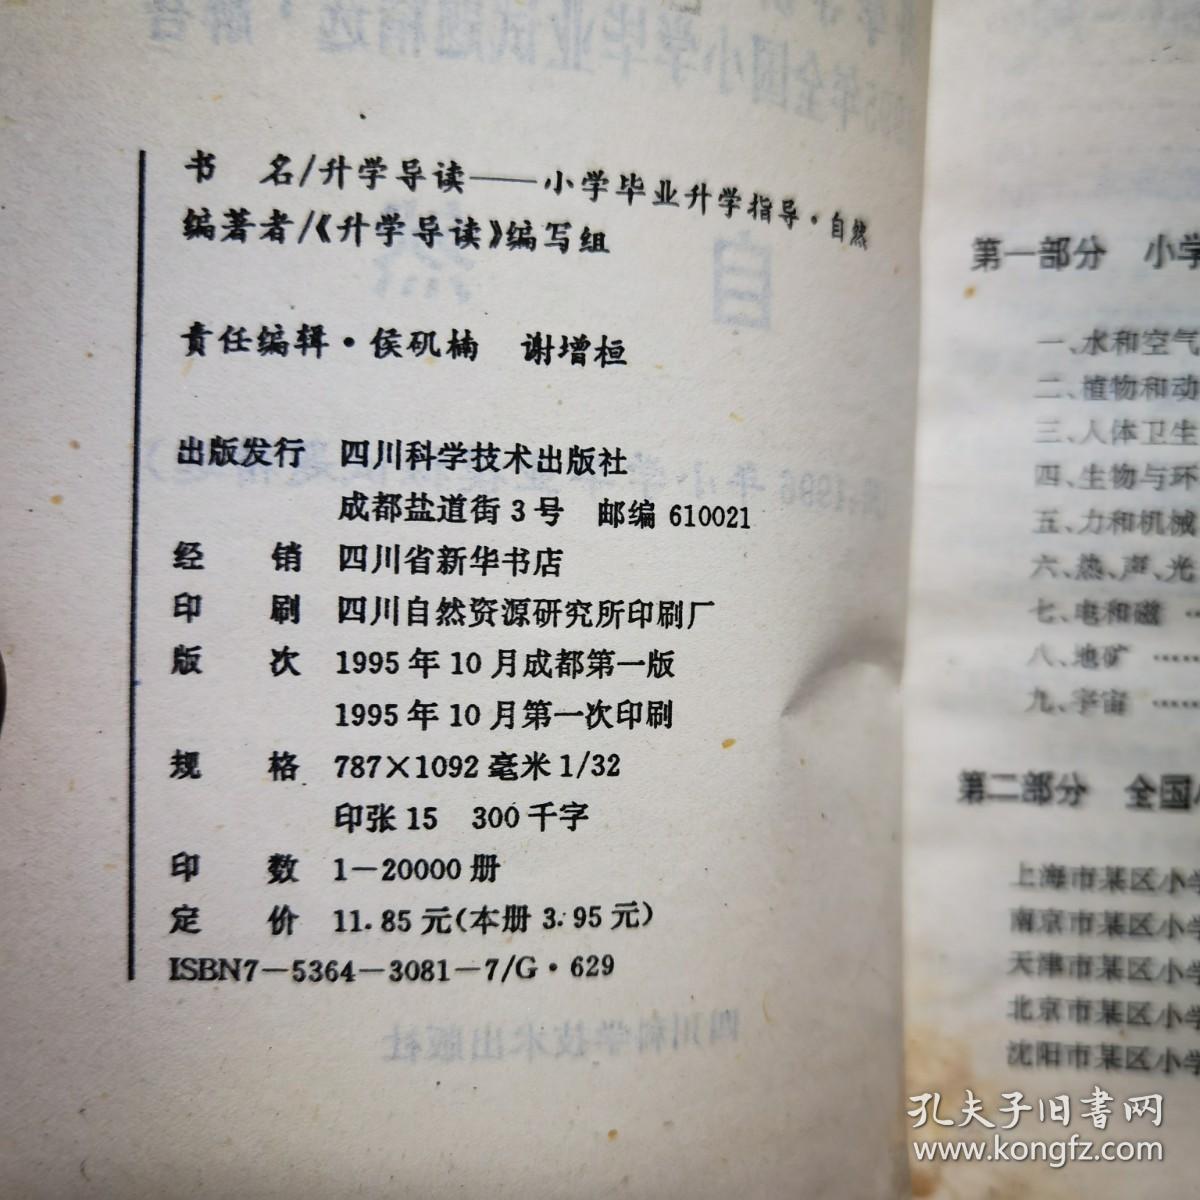 书 名/升学导读——小学毕业升学指导·自然
编著者/《升学导读》编写组
责任编辑·侯矶楠 谢增桓
出版发行 四川科学技术出版社
成都盐道街3号 邮编610021
经 销 四川省新华书店
印 刷 四川自然资源研究所印刷厂
版 次 1995年10月成都第一版
1995年10月第一次印刷
规 格 787×1092毫米1/32
印张15 300千字
印 数 1-20000册
定 价 11.85元(本册3.95元)
ISBN7-5364-3081-7/G·629
第一部分 小学
一、水和空气
二、植物和动
三、人体卫生
四、生物与环
五、力和机械
六、热、声、光
七、电和磁 …
八、地矿 ……
九、宇宙 ……
第二部分 全国
上海市某区小学
南京市某区小学
天津市某区小学
北京市某区小学
沈阳市某区小学
孔夫子旧书网
www.kongfz.com